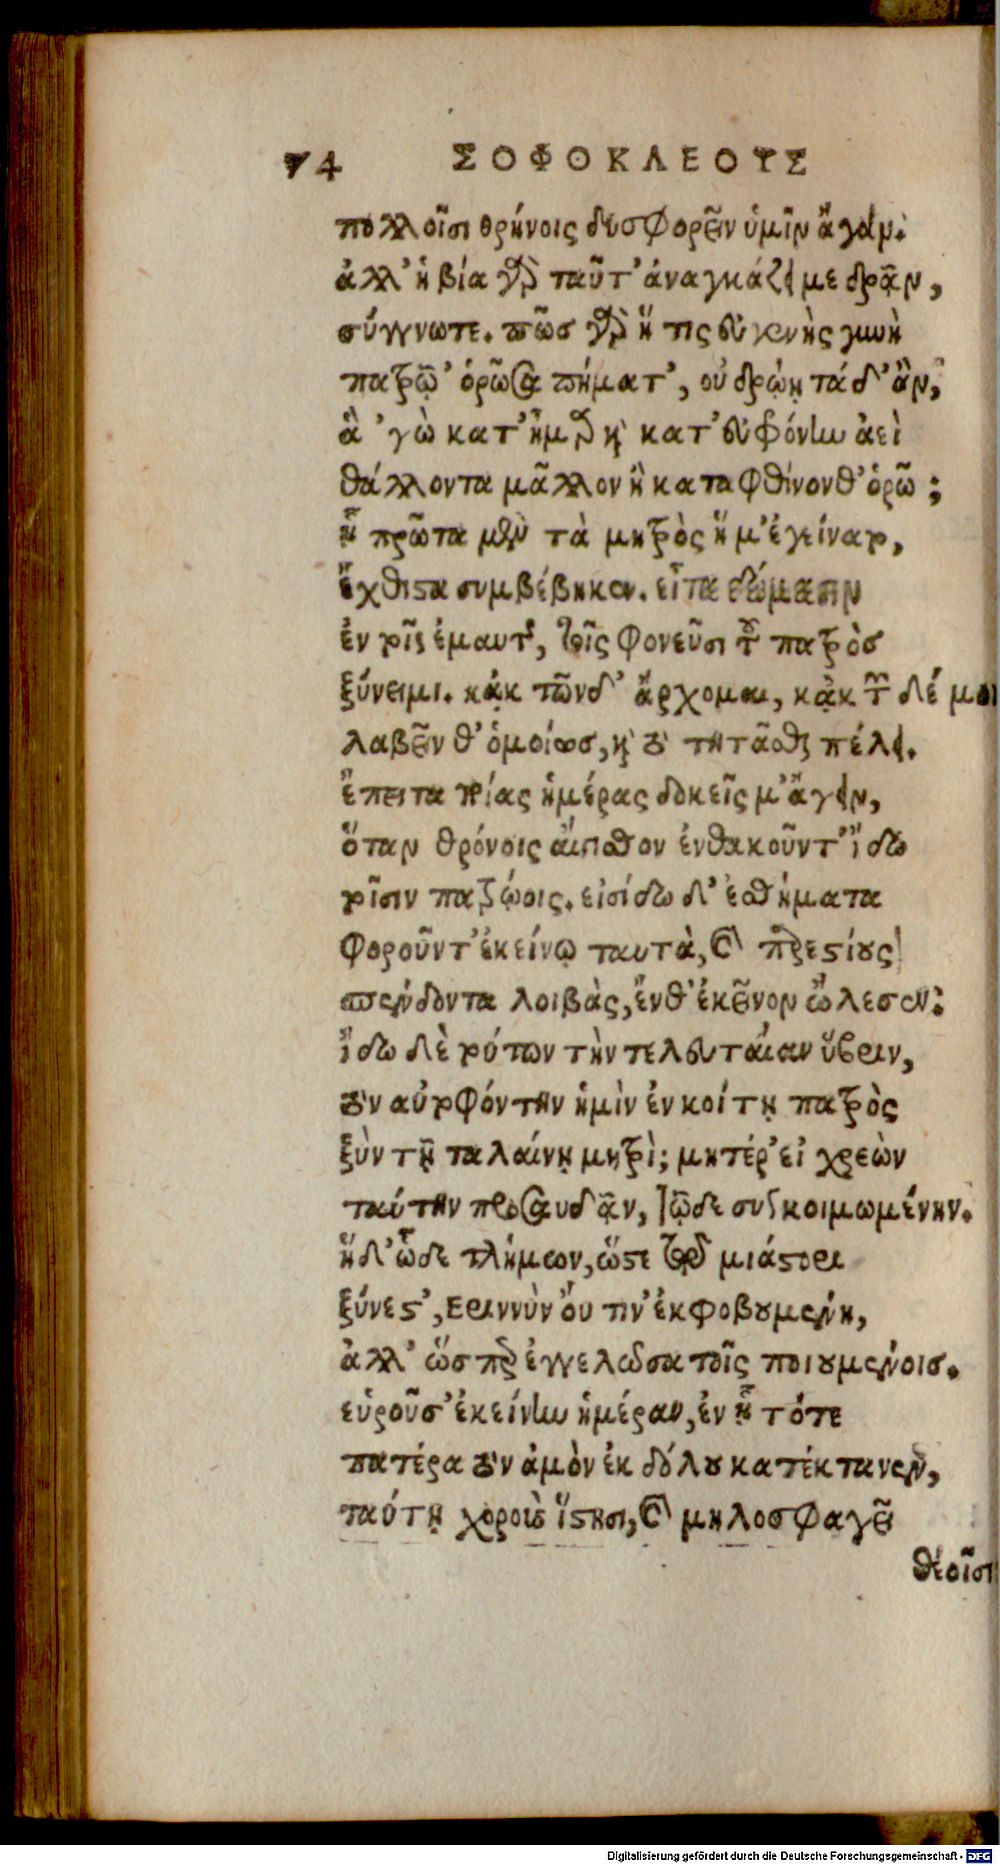 74 ΣΟΦΟΚΛΕΟΥΣ
πολλοῖσι θρήνοις δυσφορεῖν ὑμῖν ἄγαν.
ἀλλ' ἡ βία γὰρ ταῦτ' ἀναγκάζει με δρᾶν,
σύγγνωτε. πῶσ γὰρ ἥ τις εὐγενὴς γυνὴ
πατρῷ' ὁρῶσα πήματ', οὐ δρῴη τάδ' ἂν,
ἃ 'γὼ κατ' ἦμαρ καὶ κατ' εὐφρόνην ἀεὶ
θάλλοντα μᾶλλον ἢ καταφθίνονθ' ὁρῶ;
ᾗ πρῶτα μὲν τὰ μητρὸς ἥ μ' ἐγείνατο,
ἔχθιστα συμβέβηκεν. εἶτα δώμασιν
ἐν τοῖς ἐμαυτῆς, τοῖς φονεῦσι τοῦ πατρὸσ
ξύνειμι. κᾀκ τῶνδ' ἄρχομαι, κᾀκ τῶνδέ μοι
λαβεῖν θ' ὁμοίωσ, καὶ τὸ τητᾶσθαι πέλει.
ἔπειτα ποίας ἡμέρας δοκεῖς μ' ἄγειν,
ὅταν θρόνοις αἴγισθον ἐνθακοῦντ' ἴδω
τοῖσιν πατρῴοις. εἰσίδω δ' ἐσθήματα
φοροῦντ' ἐκείνῳ ταυτὰ, καὶ παρεστίους
σπένδοντα λοιβὰς, ἔνθ' ἐκεῖνον ὤλεσεν:
ἴδω δὲ τούτων τὴν τελευταίαν ὕβριν,
τὸν αὐτοφόντην ἡμὶν ἐν κοίτῃ πατρὸς
ξὺν τῇ ταλαίνῃ μητρὶ; μητέρ' εἰ χρεὼν
ταύτην προσαυδᾷν, τῷδε συγκοιμωμένην.
ἥ δ' ὧδε τλήμων, ὥστε τῷ μιάστορι
ξύνεστ', Εριννὺν οὔ τιν' ἐκφοβουμένη,
ἀλλ' ὥσπερ ἐγγελῶσα τοῖς ποιουμένοισ.
εὑροῦσ' ἐκείνην ἡμέραν, ἐν ᾗ τότε
πατέρα τὸν ἀμὸν ἐκ δόλου κατέκτανεν,
ταύτῃ χοροὺς ἵστησι, καὶ μηλοσφαγεῖ
θεοῖσι
Digitalisierung gefördert durch die Deutsche Forschungsgemeinschaft - DFG